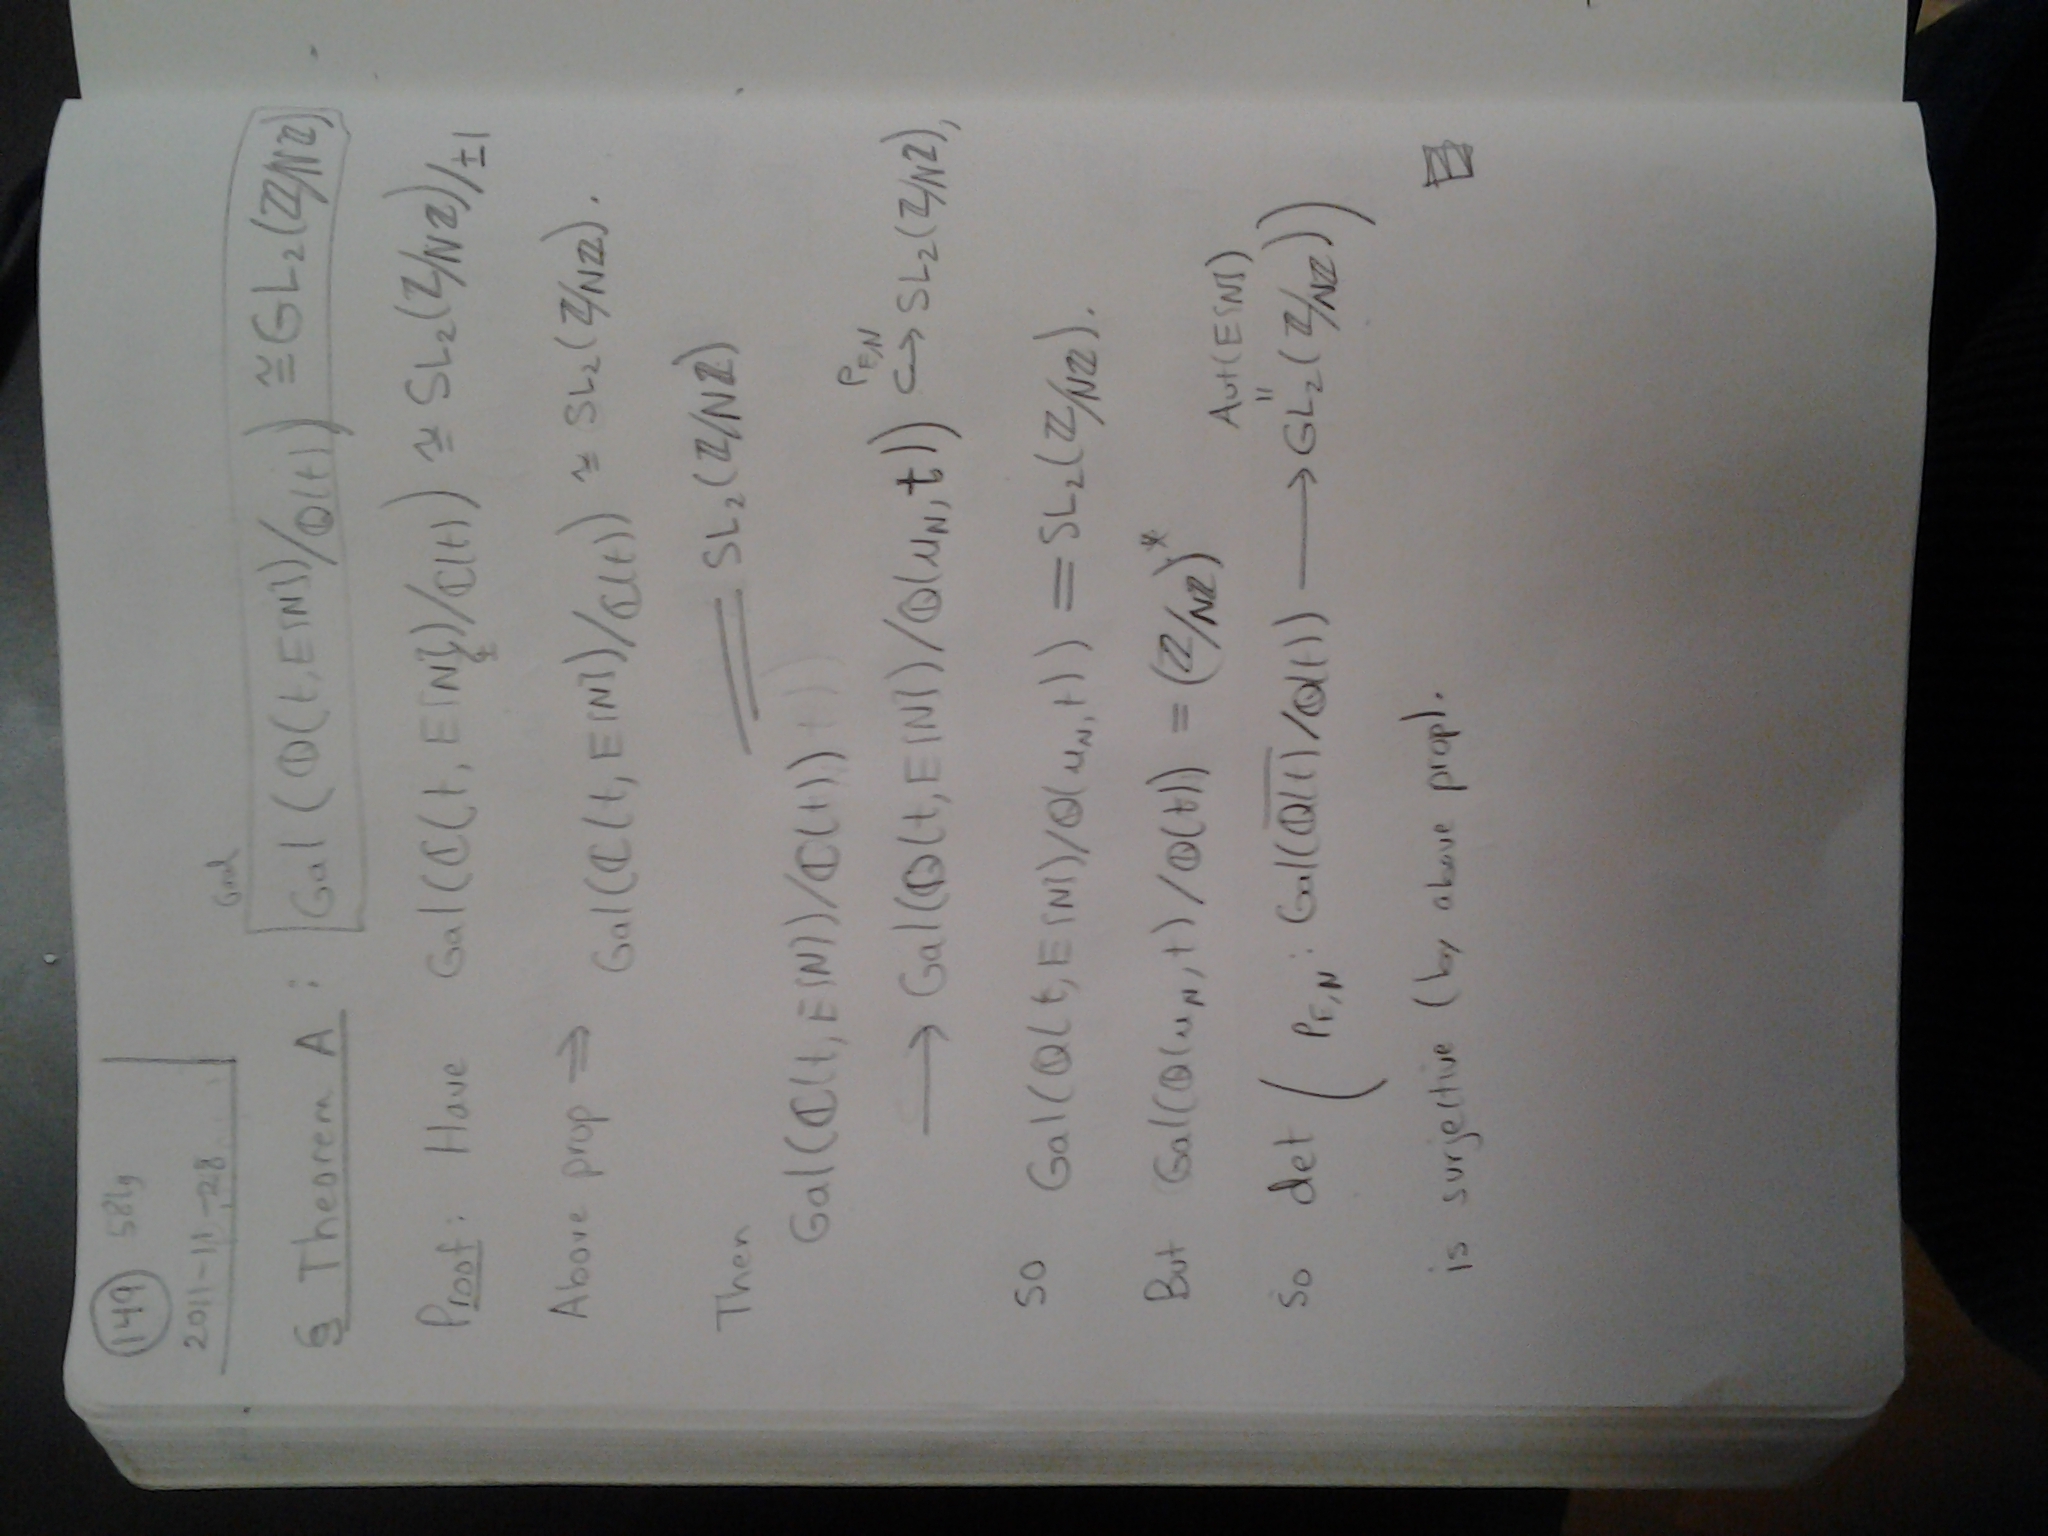 149 581g
2011-11-28
Goal
§ Theorem A: Gal(ℚ(t, E[N])/ℚ(t)) ≅ GL₂(ℤ/Nℤ)
Proof: Have Gal(ℂ(t, E[N]/±)/ℂ(t)) ≅ SL₂(ℤ/Nℤ)/±1
Above prop ⇒ Gal(ℂ(t, E[N])/ℂ(t)) ≅ SL₂(ℤ/Nℤ).
Then
SL₂(ℤ/Nℤ)
Gal(ℂ(t, E[N])/ℂ(t))
⟶ Gal(ℚ(t, E[N])/ℚ(μ_N, t)) ↪ SL₂(ℤ/Nℤ),
ρ_{E,N}
so Gal(ℚ(t, E[N])/ℚ(μ_N, t)) = SL₂(ℤ/Nℤ).
But Gal(ℚ(μ_N, t)/ℚ(t)) = (ℤ/Nℤ)*
Aut(E[N])
=
So det (ρ_{E,N}: Gal(ℚ(t)/ℚ(t)) ⟶ GL₂(ℤ/Nℤ))
is surjective (by above prop).